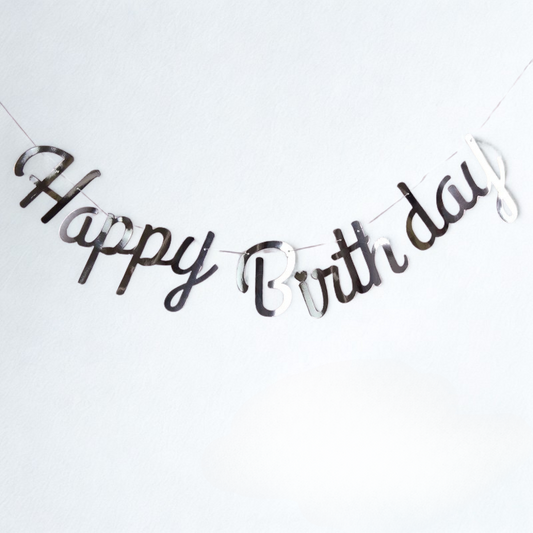 Happy Birth day